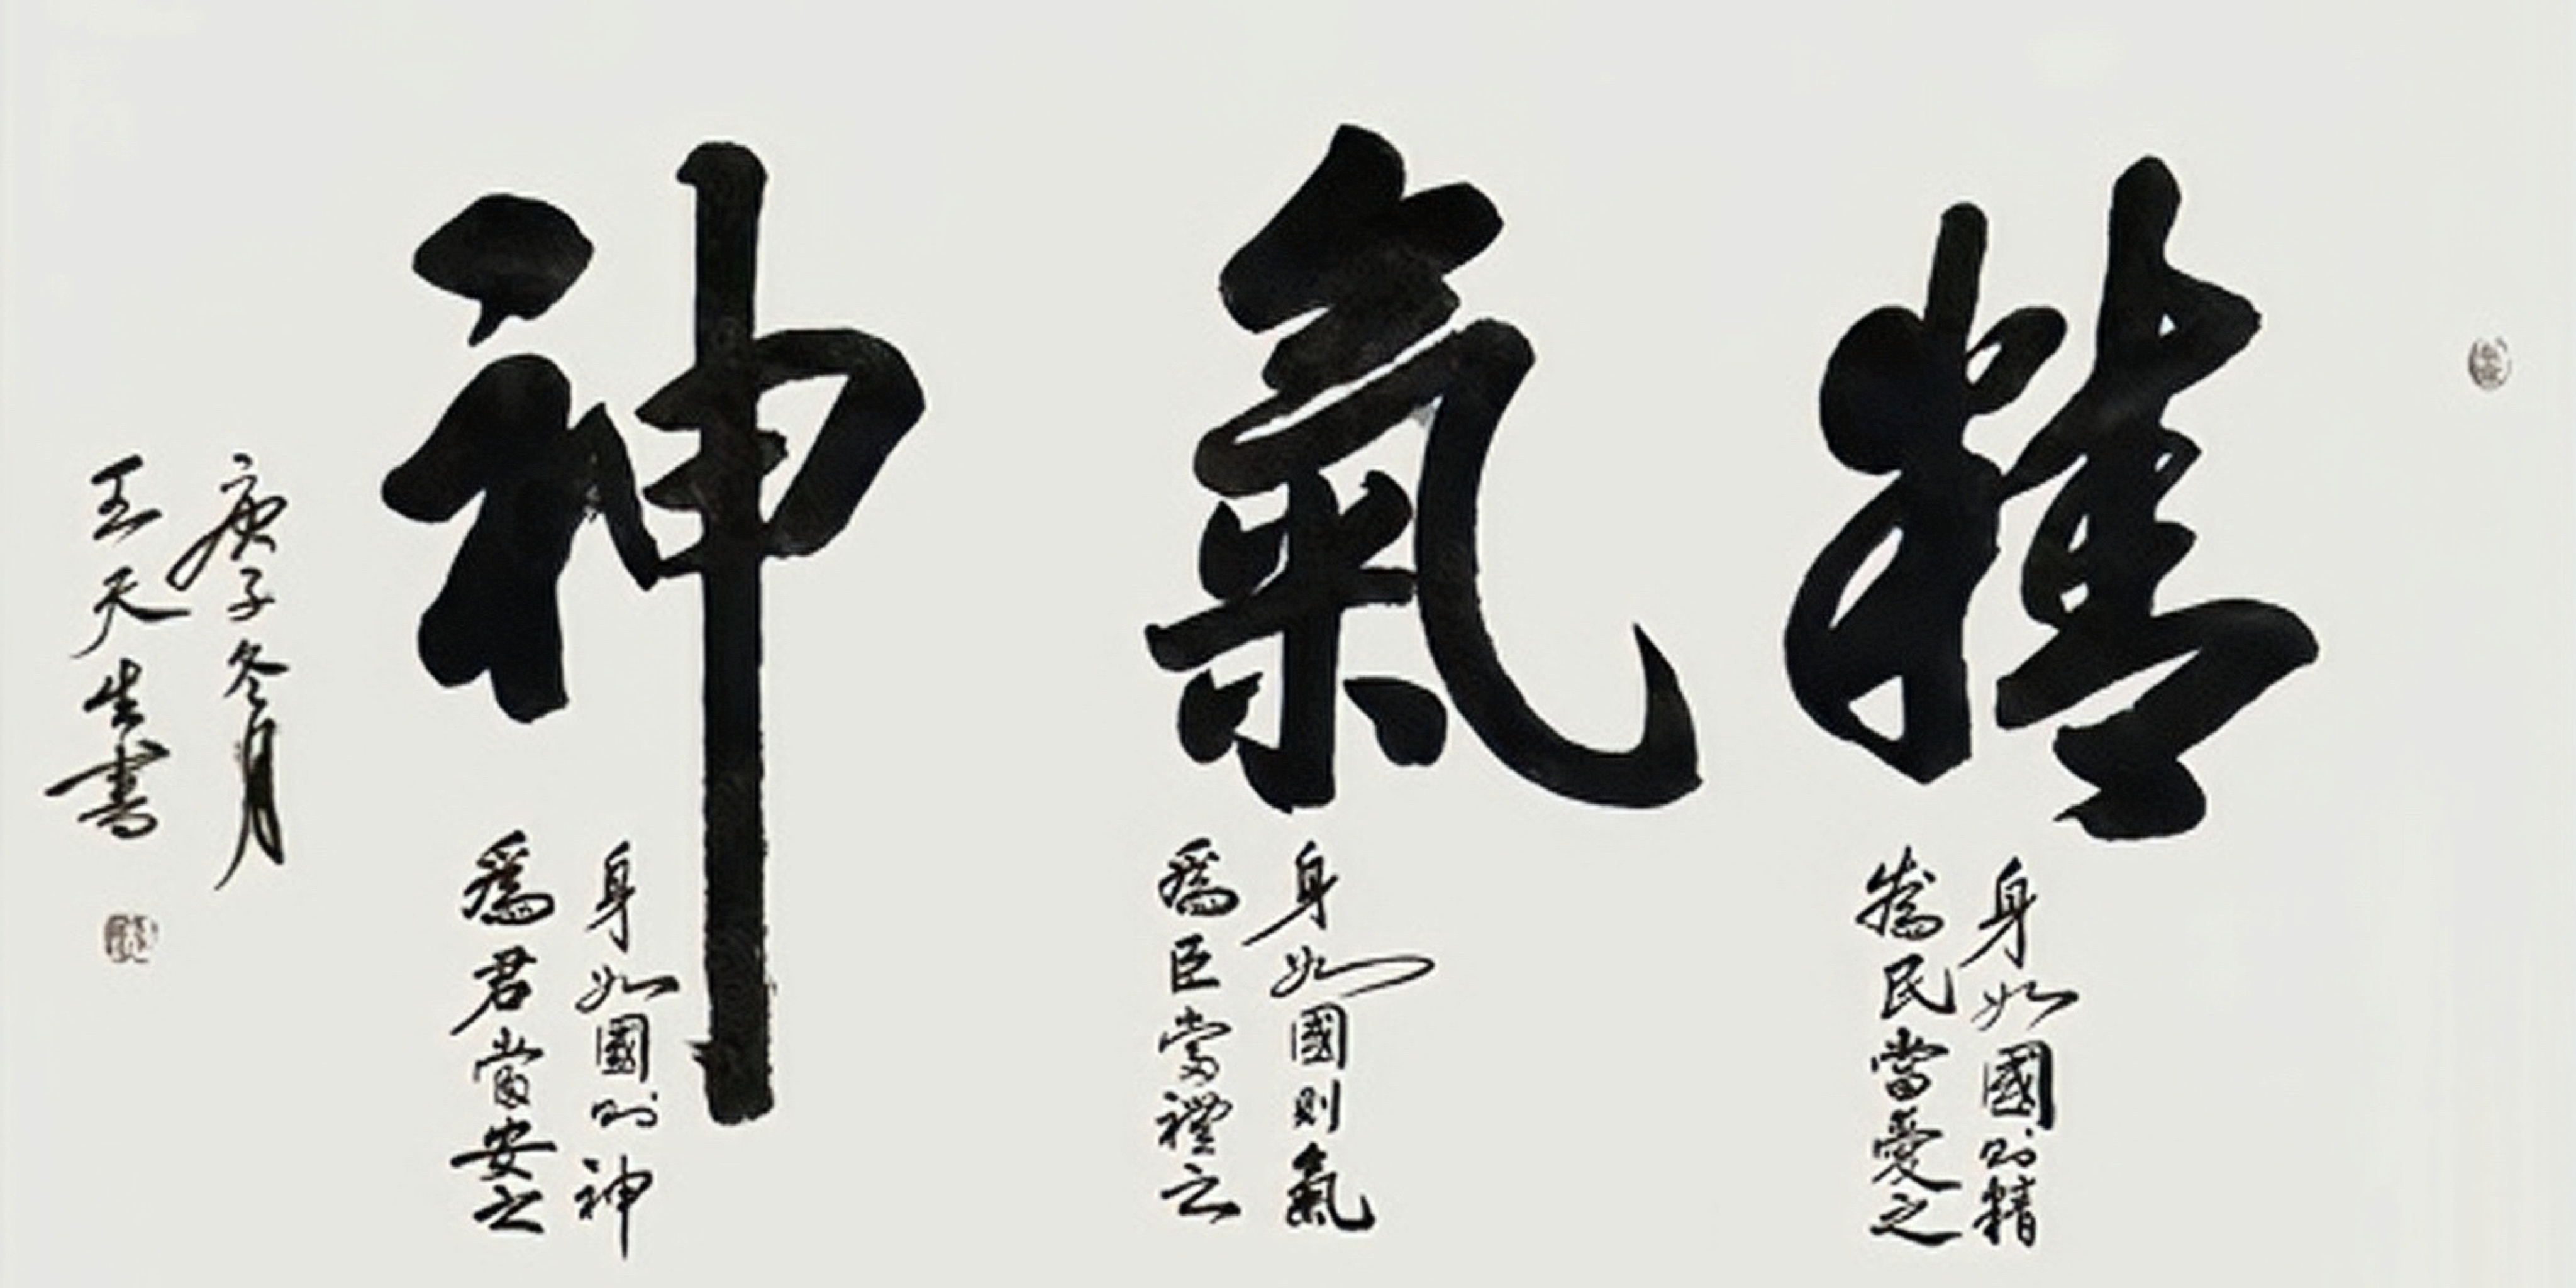 精
身如國則精
為民當愛之
氣
身如國則氣
為臣當禮之
神
身如國則神
為君當安之
庚子冬月
王天生書